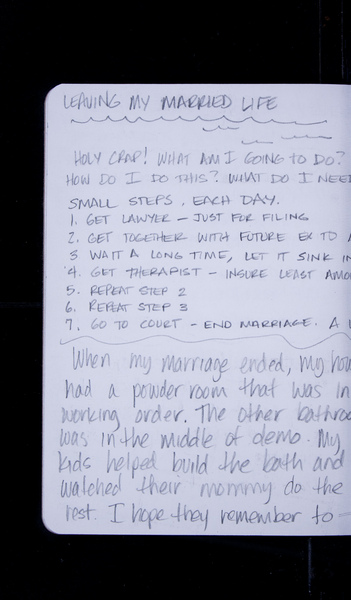 LEAVING MY MARRIED LIFE
HOLY CRAP! WHAT AM I GOING TO DO?
HOW DO I DO THIS? WHAT DO I NEED
SMALL STEPS. EACH DAY.
1. GET LAWYER – JUST FOR FILING
2. GET TOGETHER WITH FUTURE EX TO
3 WAIT A LONG TIME, LET IT SINK IN
4. GET THERAPIST – INSURE LEAST AMO
5. REPEAT STEP 2
6. REPEAT STEP 3
7. GO TO COURT – END MARRIAGE. A
When my marriage ended, my hou
had a powder room that was in
working order. The other bathroo
was in the middle of demo. My
kids helped build the bath and
watched their mommy do the
rest. I hope they remember to